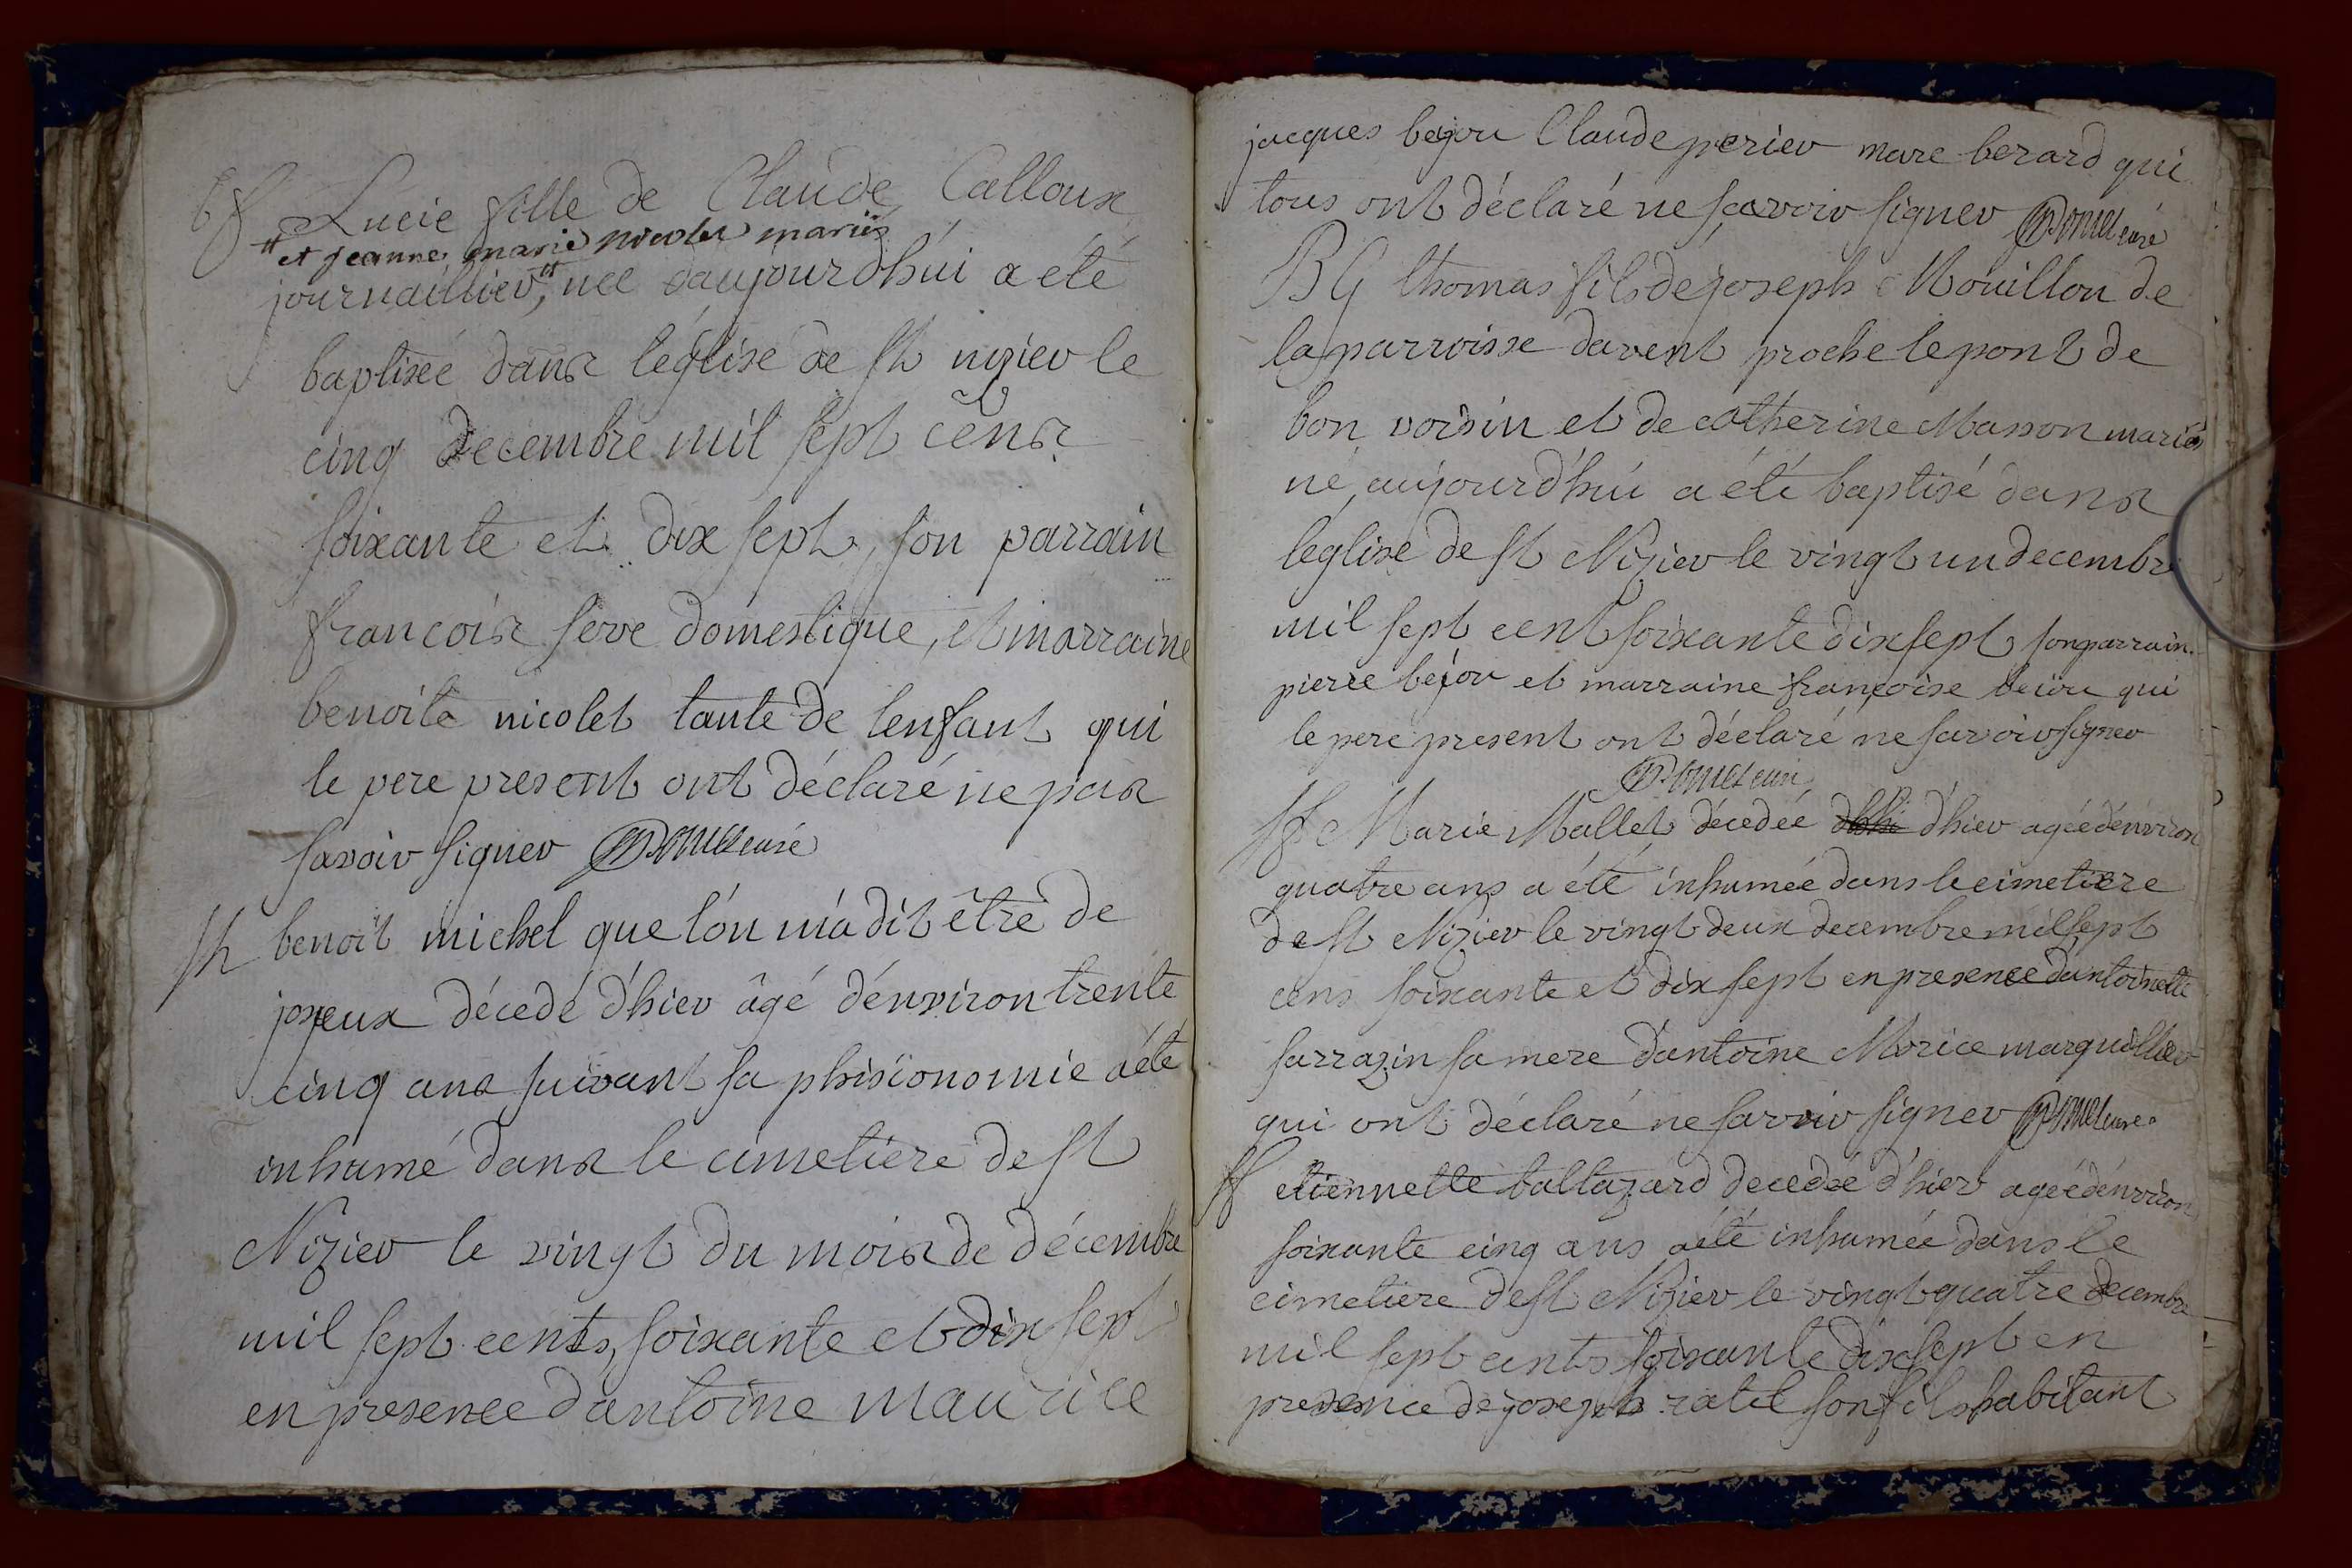 bf Lucie fille de Claude Calloux
# et jeanne marie nicolet mariés
journaillier,# née daujourd'húi a été
baptisée dans léglise de st nizier le
cinq decembre mil sept cens
soixante et dix sept, son parrain
francois serve domestique, et marraine
benoite nicolet tante de lenfant qui
le pere present ont déclaré ne pas
savoir signer curé
Sh benoit michel que lón m'a dit être de
joyeux décedé d'hier âgé d'environ trente
cinq ans suivant sa phisionomie a été
inhumé dans le cimetière de st
Nizier le vingt du mois de décembre
mil sept cents soixante et dix sept
en presence d'antoine maurice
jacques bejou Claude perier marc berard qui
tous ont déclaré ne sçavoir signer curé
BG thomas fils de joseph Mouillon de
la parroisse davent proche le pont de
bon voisin et de catherine Masson mariés
né aujourd'húi a été baptisé dans
léglise de st Nizier le vingt un decembre
mil sept cent soixante dix sept son parrain
pierre béjou et marraine françoise beiou qui
le pere present ont déclaré ne savoir signer
curé
Sf Marie Mallet décedée d'hier agée dénviron
quatre ans a été inhumée dans le cimetiere
de st Nizier le vingt deux decembre mil sept
cens soixante et dix sept en presence dantoinette
sarrazin sa mere d'antoine Morice marguillier
qui ont déclaré ne savoir signer curé
Sf etiennette baltazard decedée d'hier agée dénviron
soixante cinq ans a été inhumée dans le
cimetiere de st Nizier le vingt quatre decembre
mil sept cents soixante dix sept en
presence de joseph ratel son fils habitant